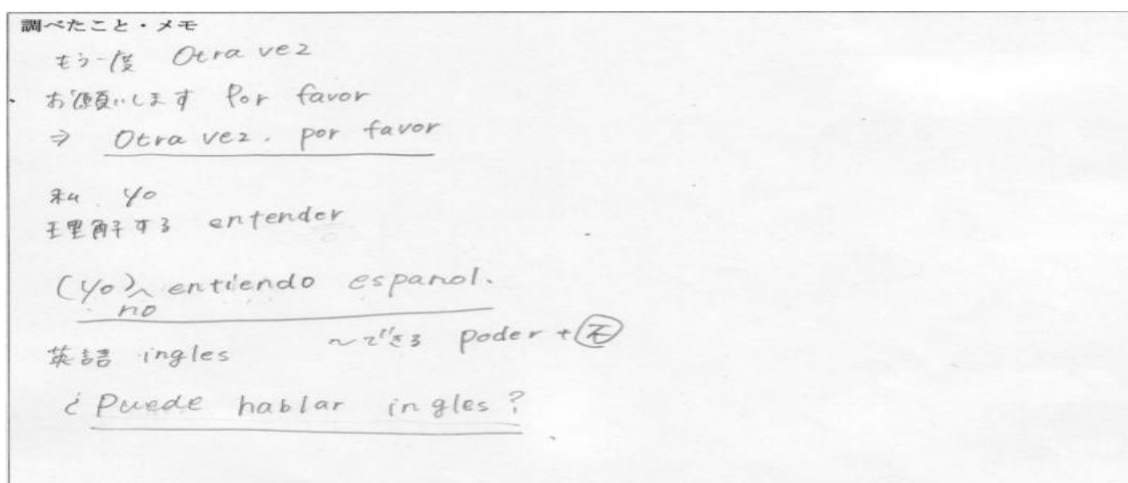 調べたこと・メモ
もう一度 Otra vez
お願いします Por favor
⇒ Otra vez. por favor
私 yo
理解する entender
(yo) entiendo espanol.
no
〜できる poder + 不
英語 ingles
¿Puede hablar ingles?